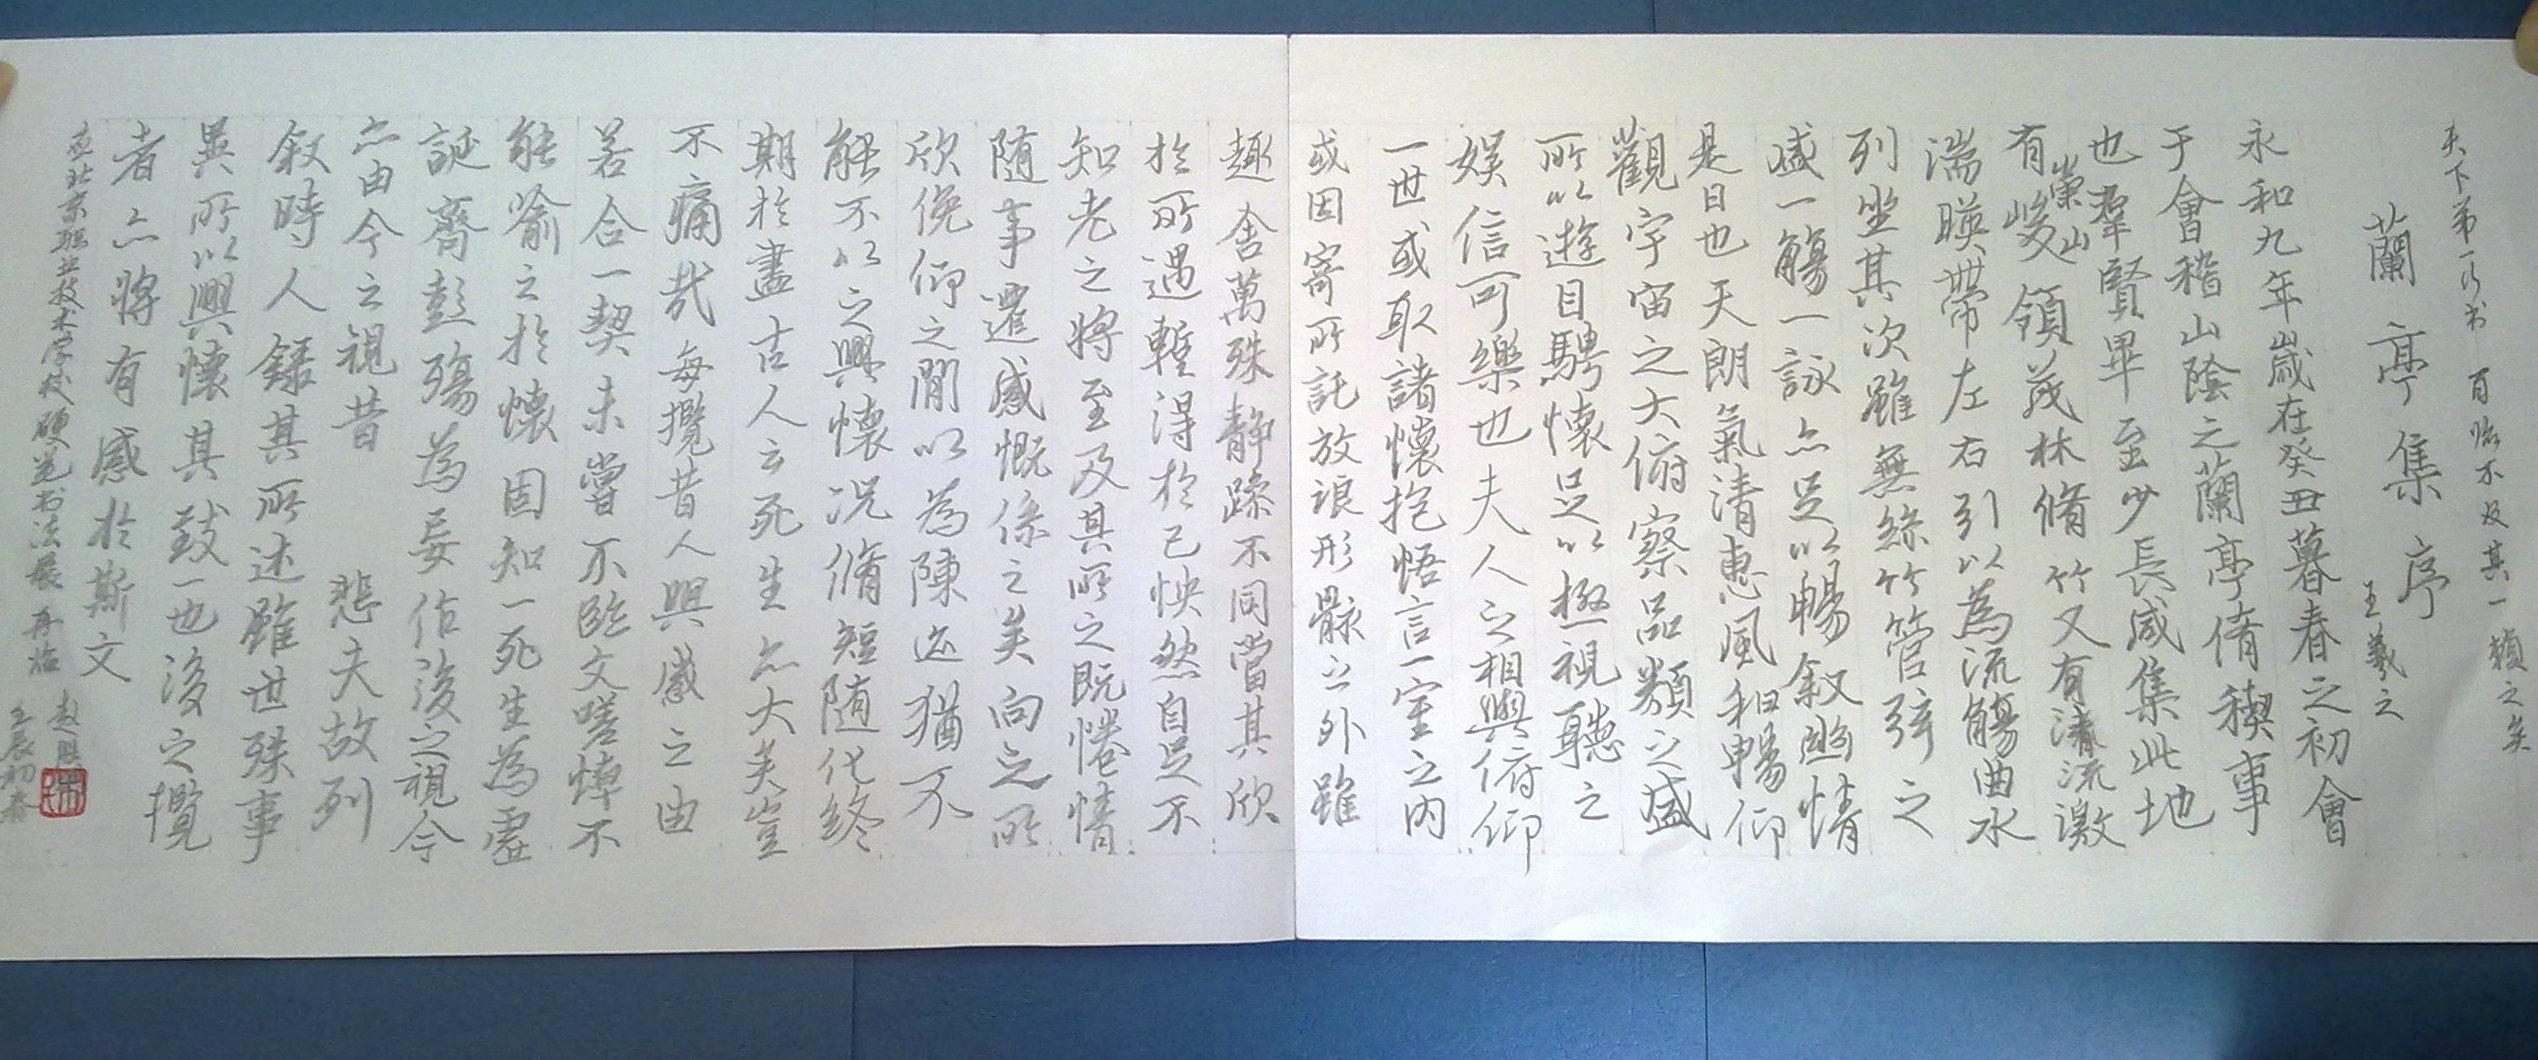 天下第一行书 百临不及其一 赖之矣
蘭亭集序
王羲之
永和九年歲在癸丑暮春之初會
于會稽山陰之蘭亭脩稧事
也羣賢畢至少長咸集此地
有崇山峻領茂林脩竹又有清流激
湍暎帶左右引以為流觴曲水
列坐其次雖無絲竹管弦之
盛一觴一詠亦足以暢叙幽情
是日也天朗氣清惠風和暢仰
觀宇宙之大俯察品類之盛
所以遊目騁懷足以極視聽之
娛信可樂也夫人之相與俯仰
一世或取諸懷抱悟言一室之內
或因寄所託放浪形骸之外雖
趣舍萬殊靜躁不同當其欣
於所遇蹔得於己怏然自足不
知老之將至及其所之既惓情
隨事遷感慨係之矣向之所
欣俛仰之閒以為陳迹猶不
能不以之興懷況脩短隨化終
期於盡古人云死生亦大矣豈
不痛哉每攬昔人興感之由
若合一契未嘗不臨文嗟悼不
能喻之於懷固知一死生為虛
誕齊彭殤為妄作後之視今
亦由今之視昔 悲夫故列
叙時人錄其所述雖世殊事
異所以興懷其致一也後之攬
者亦將有感於斯文
应北京职业技术学校硬笔书法展 再临
壬辰初春